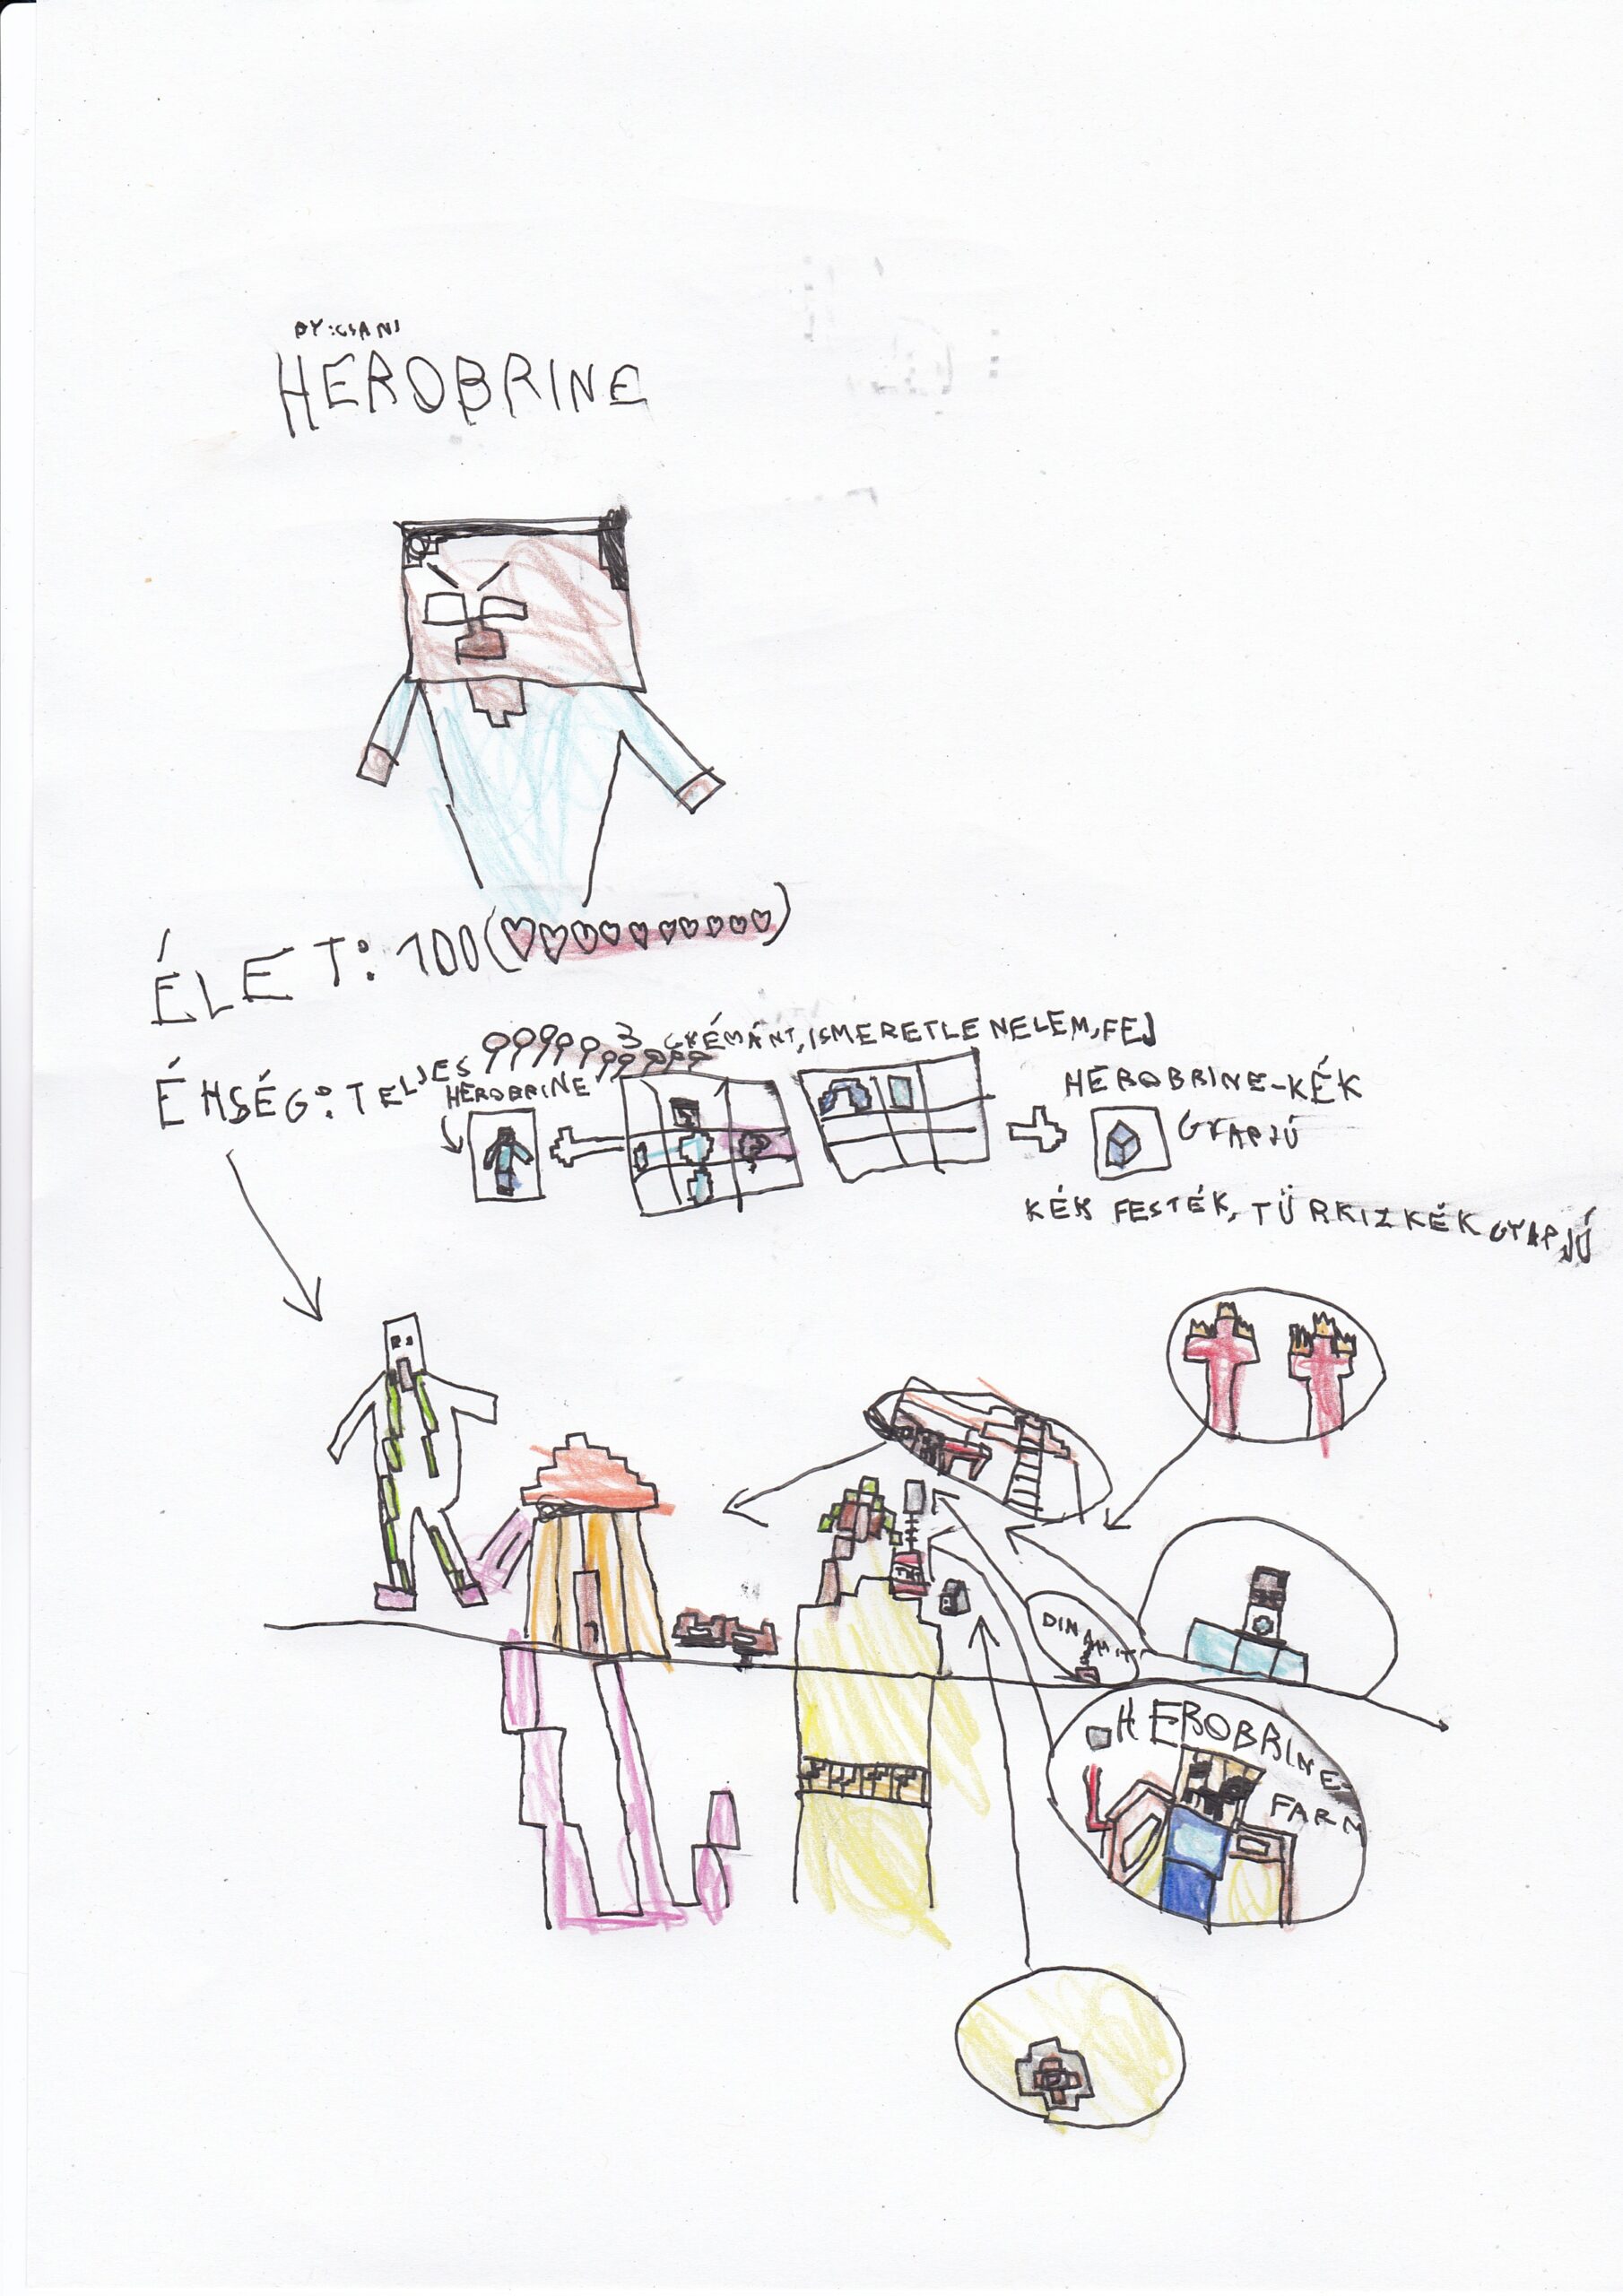 BY:CSANI
HEROBRINE
ÉLET: 100(♡♡♡♡♡♡♡♡♡♡)
ÉHSÉG: TELJES
3 GYÉMÁNT, ISMERETLENELEM, FEJ
HEROBRINE
HEROBRINE-KÉK
GYAPJÚ
KÉK FESTÉK, TÜRKIZKÉK GYAPJÚ
DINAMIT
HEROBRINE-
FARM